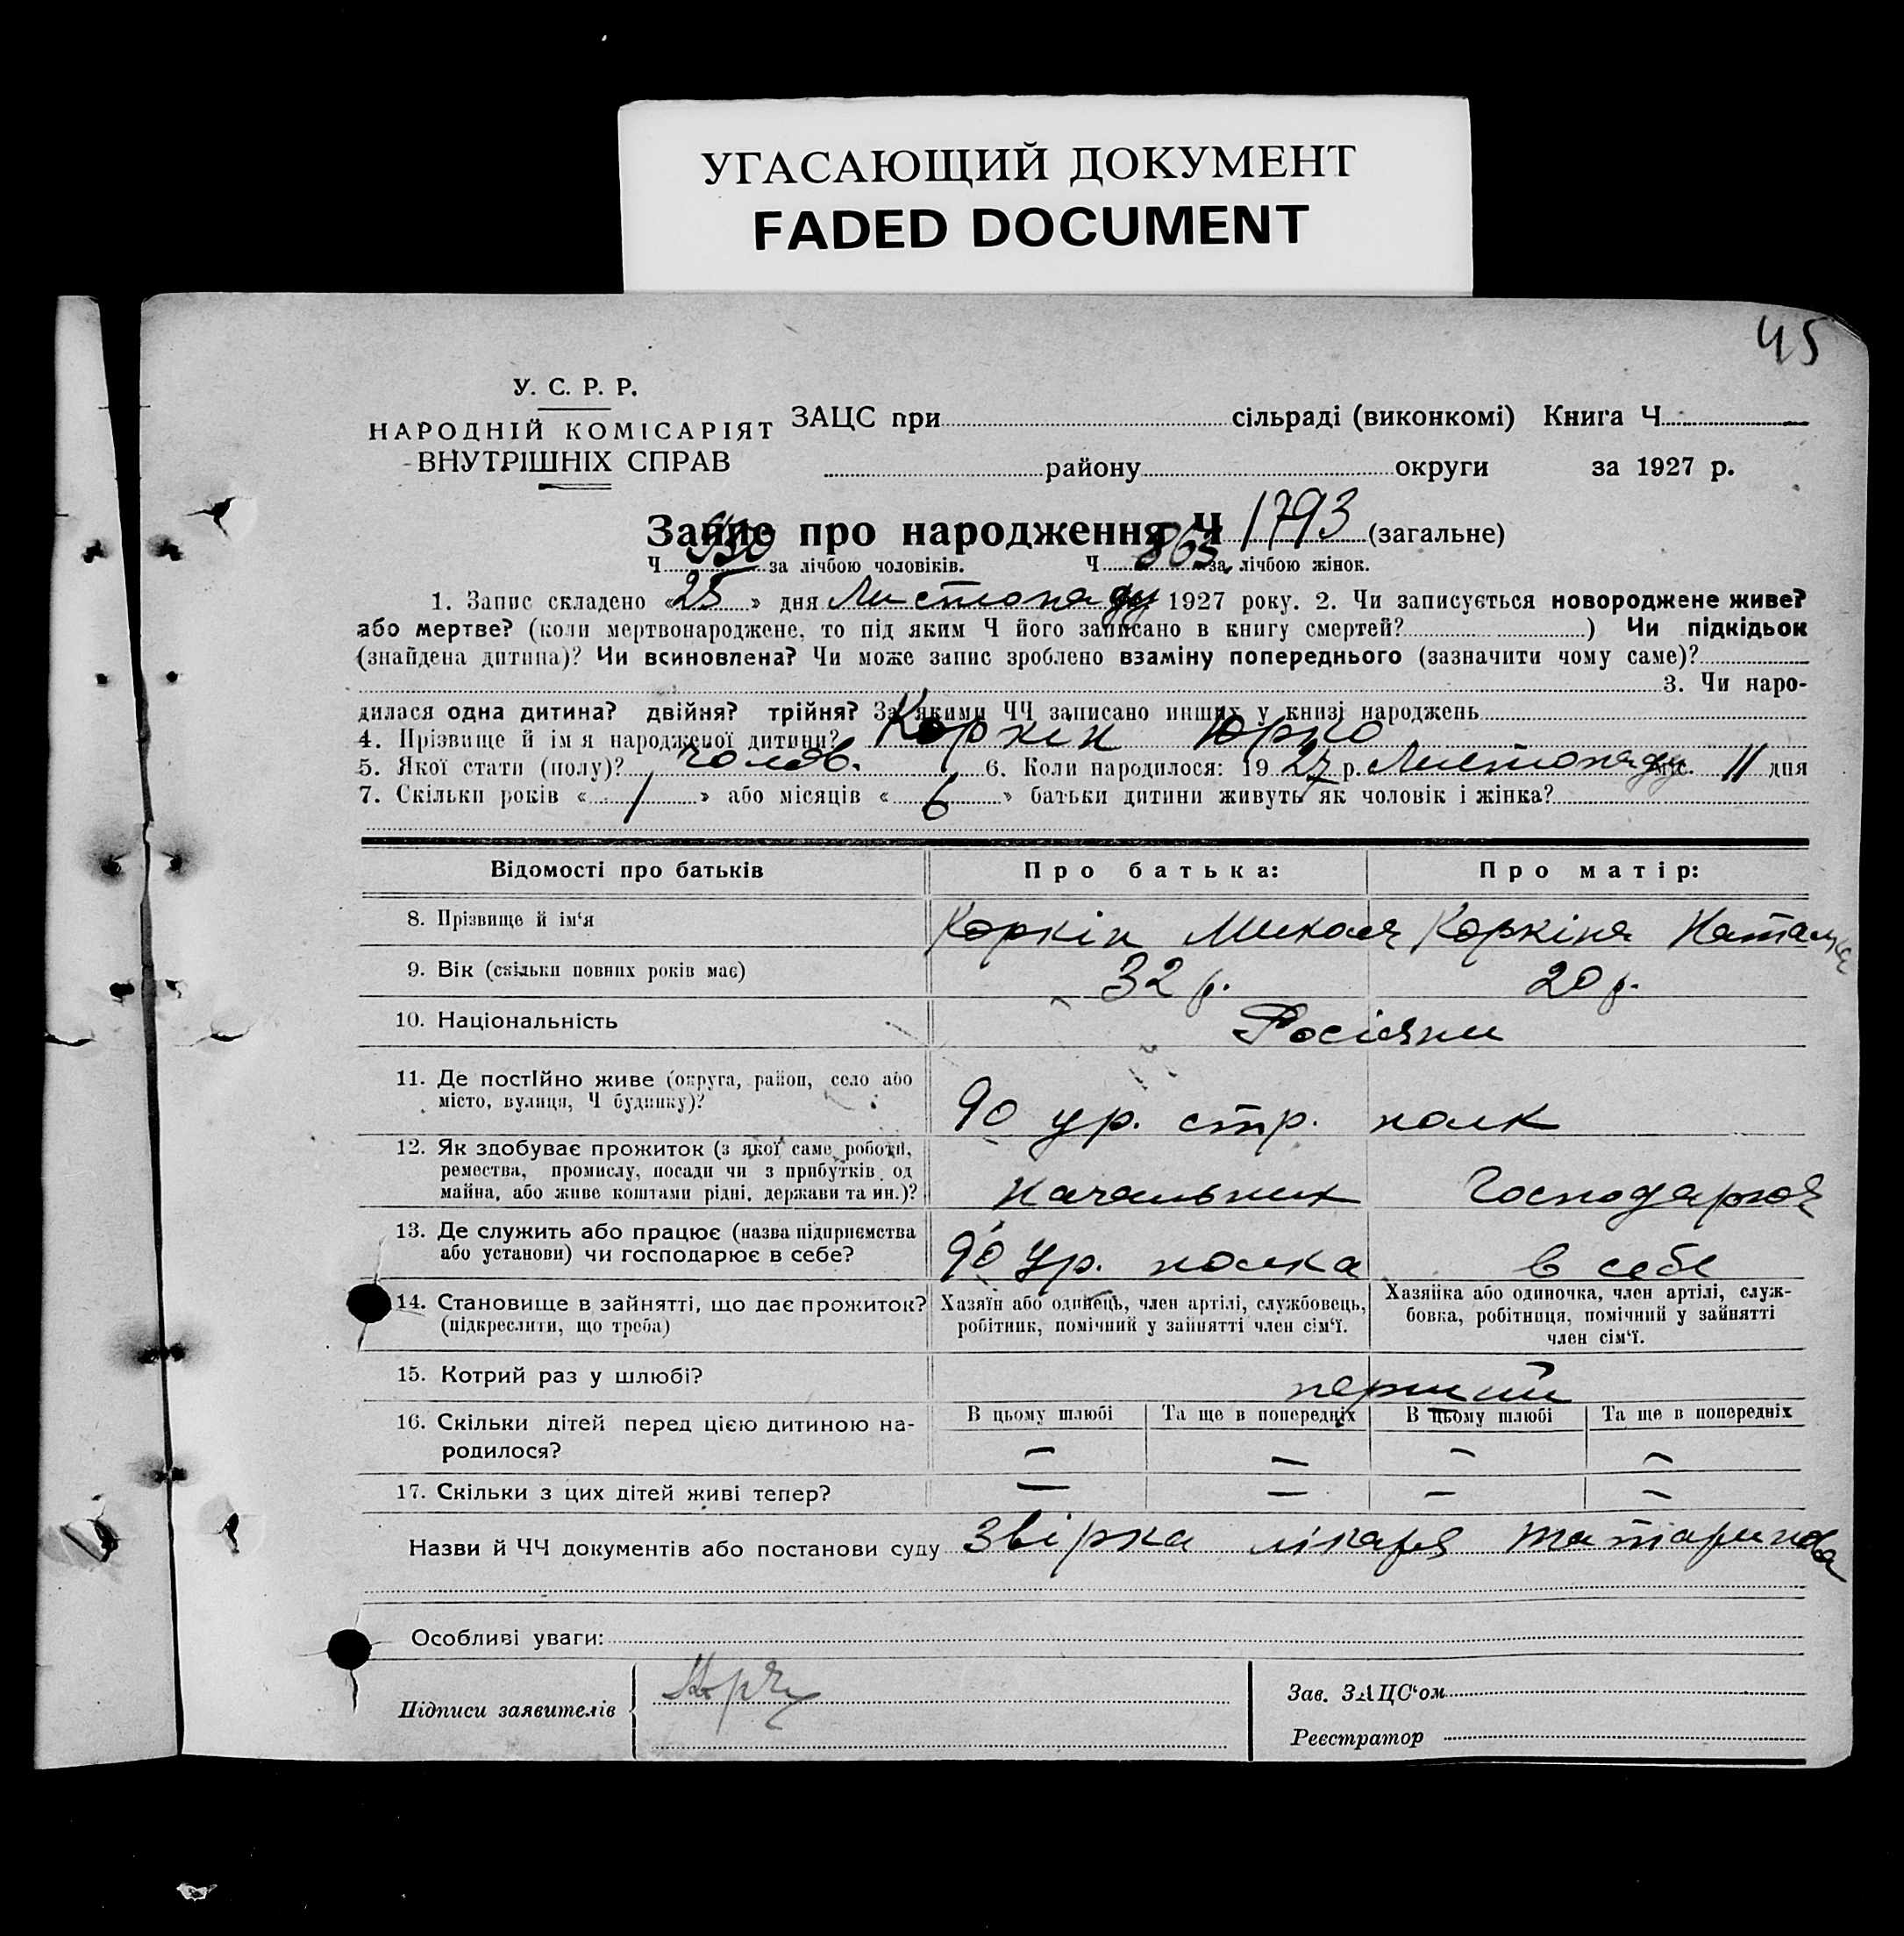 УГАСАЮЩИЙ ДОКУМЕНТ
FADED DOCUMENT
45
У. С. Р. Р.
НАРОДНІЙ КОМІСАРІЯТ
ВНУТРІШНІХ СПРАВ
ЗАЦС при сільраді (виконкомі) Книга Ч.
району округи за 1927 р.
Запис про народження Ч 1793 (загальне)
Ч 930 за лічбою чоловіків. Ч 863 за лічбою жінок.
1. Запис складено «25» дня Листопаду 1927 року. 2. Чи записується новороджене живе?
або мертве? (коли мертвонароджене, то під яким Ч його записано в книгу смертей? ) Чи підкідьок
(знайдена дитина)? Чи всиновлена? Чи може запис зроблено взаміну попереднього (зазначити чому саме)?
3. Чи наро-
дилася одна дитина? двійня? трійня? За якими ЧЧ записано инших у книзі народжень
4. Прізвище й ім я народженої дитини? Коркін Юрко
5. Якої стати (полу)? чолов. 6. Коли народилося: 1927 р. Листопаду міс. 11 дня
7. Скільки років « 1 » або місяців « 6 » батьки дитини живуть як чоловік і жінка?
Відомості про батьків Про батька: Про матір:
8. Прізвище й ім'я Коркін Микола Коркіна Наталка
9. Вік (скільки повних років має) 32 р. 20 р.
10. Національність Росіяни
11. Де постійно живе (округа, район, село або
місто, вулиця, Ч будинку)? 90 ур. стр. полк
12. Як здобуває прожиток (з якої саме роботи,
ремества, промислу, посади чи з прибутків од
майна, або живе коштами рідні, держави та ин.)? Начальник Господарює
13. Де служить або працює (назва підприємства
або установи) чи господарює в себе? 90 Ур. полка в себе
14. Становище в зайнятті, що дає прожиток? Хазяїн або одинець, член артілі, службовець, Хазяйка або одиночка, член артілі, служ-
(підкреслити, що треба) робітник, помічний у зайнятті член сім'ї. бовка, робітниця, помічний у зайнятті
член сім'ї.
15. Котрий раз у шлюбі? перший
16. Скільки дітей перед цією дитиною на- В цьому шлюбі Та ще в попередніх В цьому шлюбі Та ще в попередніх
родилося? — — — —
17. Скільки з цих дітей живі тепер? — — — —
Назви й ЧЧ документів або постанови суду Звірка лікаря Татаринова
Особливі уваги:
Підписи заявителів
Зав. ЗАЦС'ом
Реєстратор